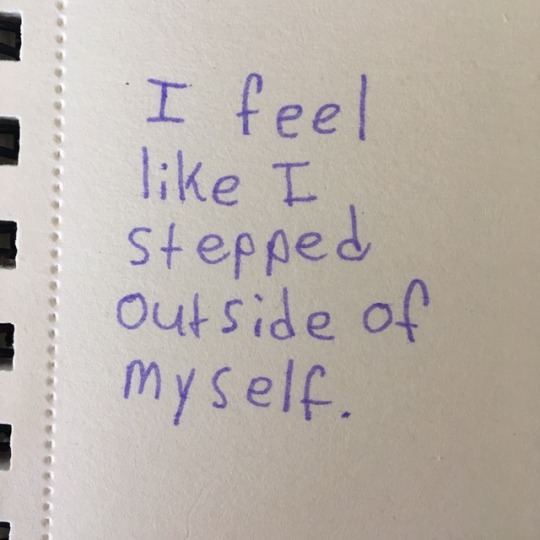 I feel
like I
stepped
outside of
myself.